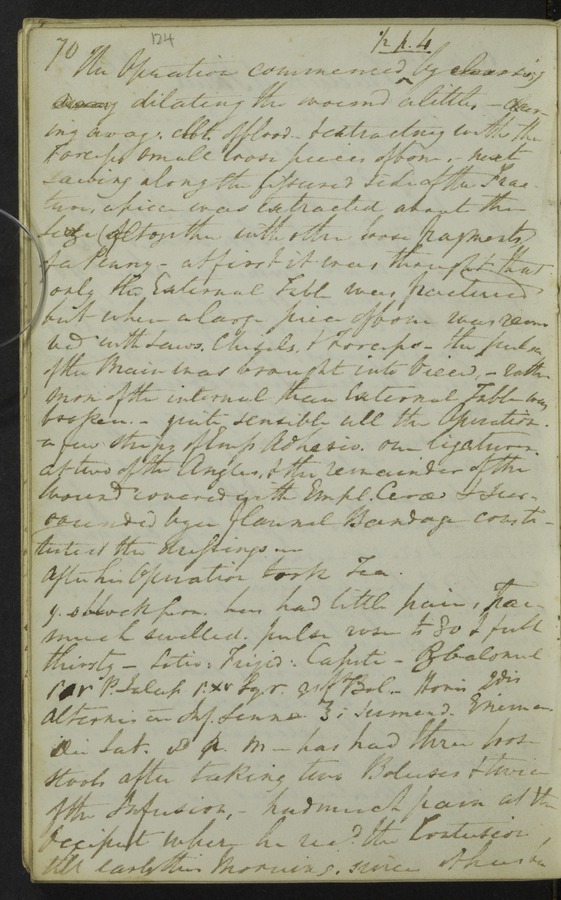 70 124 ½ p. 4
The Operation commenced by cleansing
away dilating the wound a little, - clean-
ing away clots of blood & extracting with the
Forceps small loose pieces of bone, - next
sawing along the fissured side of the Frac-
ture, a piece was extracted about the
size (altogether with other loose fragments)
of a Penny - at first it was thought that
only the External Table was fractured
but when a large piece of bone was remo
ved with Saws, Chisels, & Forceps - the pulsn
of the Brain was brought into view, - rather
more of the internal than External Table was
broken. - quite sensible all the Operation.
a few strips of Emp Adhesiv. one ligature
at two of the Angles, & the remainder of the
wound covered with Empl. Cerae & Sur-
rounded by a flannel Bandage consti-
tuted the dressings
After his Operation took Tea.
9. oclock p.m. has had little pain, Face
much swelled. pulse rose to 80 & full
thirsty - Lotio: Frigid: Capiti - Calomel
P. Jalap Bol. - Horis
alternis Inf. Senna sumend. Enema
has had three
stools after taking two Boluses & twice
of the Infusion, - had much pain at the
Occiput where he recd. the Contusion
till early this Morning, since